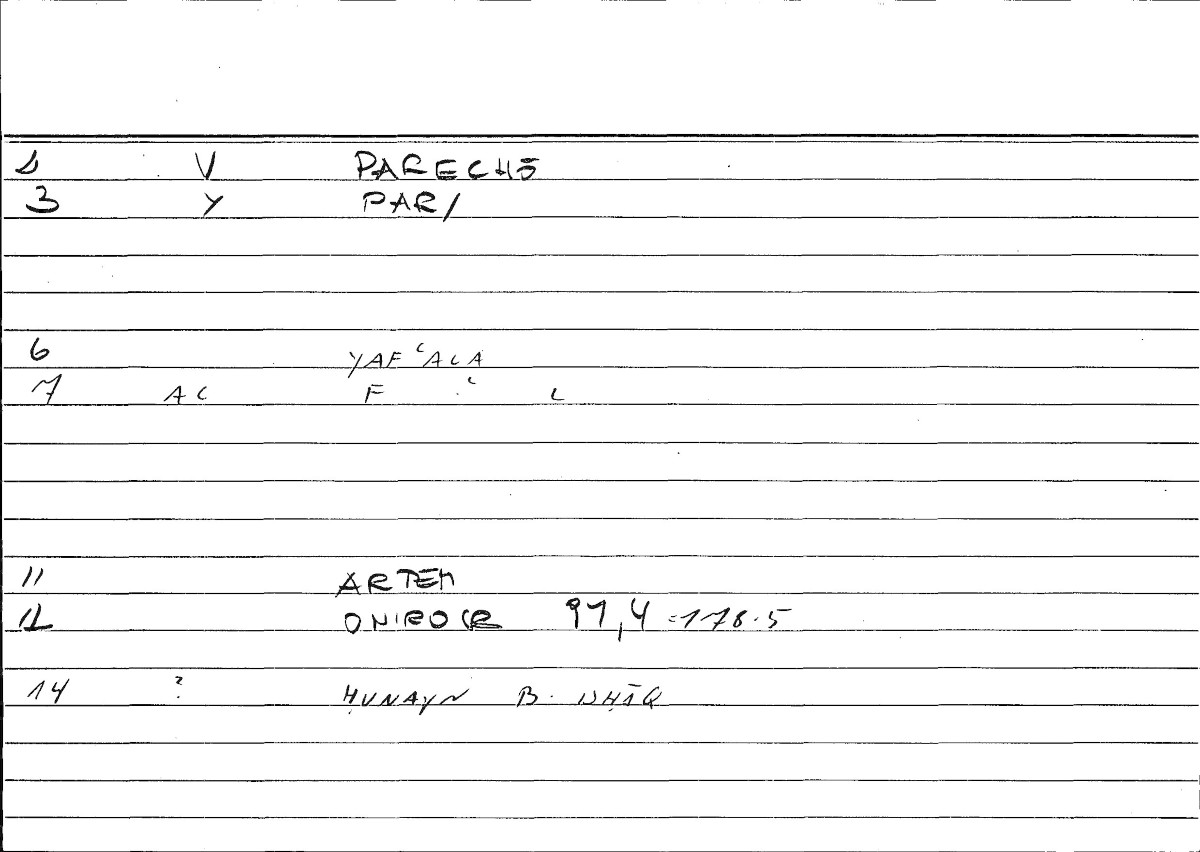 1 V PARECHŌ
3 Y PAR/
6 YAFʿALA
7 AL F ʿ L
11 ARTEM
12 ONIROCR 91,4 =178.5
14 ? ḤUNAYN B. ISḤĀQ